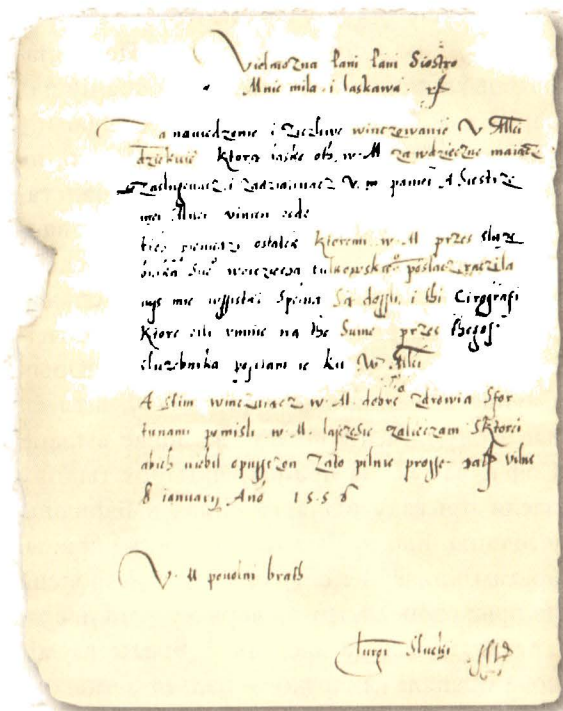 Vielmozna Pani Pani Siostro
Mnie mila i laskawa
Za nauiedzenie i zicżliwe winczowanie V Mci
dziekuie Ktora laske od w M za wdzieczne maiacz
Zaslugiuacz i zadzialiuacz V. m paniei A Siestrze
mei Mnei vinien bede
tich pieniedzi ostatek Ktoremi w M przes sluze
bnika Sue woicziecha poslacz raczila
mnie Spelna Sa doszli i thi Cirografi
Ktore bili vmnie na the Sume przes
sluzebnika posilam ie ku W Mci
A Stim winczuiacz w M. dobre zdrowia Sfor
tunami pomisli w M. zalieczam Sktorei
abich niebil opusszon Zato pilnie prosse. Vilne
8 ianuary Ano 1556
V. M powolni brath
Iurgi Slucki